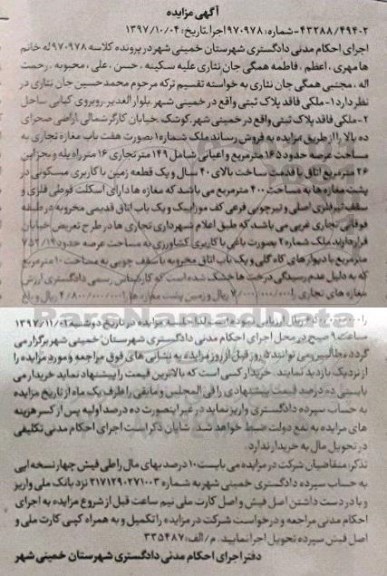 آگهی مزایده
۴۳۲۸۸/۴۹۴۰۲-شماره: ۹۷۰۹۷۸اجرا تاریخ: ۱۳۹۷/۱۰/۰۴
اجرای احکام مدنی دادگستری شهرستان خمینی شهر در پرونده کلاسه ۹۷۰۹۷۸ له خانم
ها مهری ، اعظم ، فاطمه همگی جان نثاری علیه سکینه ، حسن ، علی ، محبوبه ، رحمت
اله ، مجتبی همگی جان نثاری به خواسته تقسیم ترکه مرحوم محمد حسین جان نثاری در
نظر دارد ۱-ملکی فاقد پلاک ثبتی واقع در خمینی شهر بلوار الغدیر روبروی کیانی ساحل
۲-ملکی فاقد پلاک ثبتی واقع در خمینی شهر کوشک خیابان کارگر شمالی اراضی صحرای
ده بالا را از طریق مزایده به فروش رساند ملک شماره۱ بصورت هفت باب مغازه تجاری به
مساحت عرصه حدود ۵۶۵ متر مربع و اعیانی شامل ۱۴۹ متر تجاری ۱۶ متر راه پله و بحرا بین
۲۶ متر مربع اتاق با قدمت ساخت بالای ۴۰ سال و یک قطعه زمین با کاربری مسکونی در
پشت مغازه ها به مساحت ۴۰۰ متر مربع می باشد که مغازه ها دارای اسکلت فوطی فلزی و
سقف تیر فلزی اصلی و تیر چوبی فرعی کف موزاییک و یک باب اتاق قدیمی مخروبه در طبقه
فوقانی تجاری غربی می باشد که طبق اعلام شهرداری تجاری ها در طرح تعریض خیابان
قرار دارند ملک شماره ۲ بصورت باغی با کاربری کشاورزی به مساحت عرصه حدود ۷۵۲/۱۷
متر مربع با دیوارهای کاه گلی و یک باب اتاق مخروبه با سقف چوبی به مساحت ۱۰ متر مربع
که به دلیل عدم رسیدگی درخت ها خشک شده است که کارشناس رسمی دادگستری ارزش
مغازه های تجاری را ۷/۰۰۰/۰۰۰/۰۰۰ ریال و زمین پشت مغازه ها را ۴/۸۰۰/۰۰۰/۰۰۰ ریال و باغ
ریال ارزیابی نموده است لذا جلسه مزایده در تاریخ دوشنبه ۱۳۹۷/۱۱/۰۲
ساعت ۹ صبح در محل اجرای احکام مدنی دادگستری شهرستان خمینی شهر برگزار می
گردد مطالبین می توانند ۵ روز قبل از روز مزایده به نشانی های فوق مراجعه و مورد مزایده را
از نزدیک بازدید نمایند . خریدار کسی است که بالاترین قیمت را پیشنهاد نماید خریدار می
بایستی ده درصد قیمت پیشنهادی را فی المجلس و مابقی را ظرف یک ماه از تاریخ مزایده
به حساب سپرده دادگستری واریز نماید در غیر اینصورت ده درصد اولیه پس از کسر هزینه
های مزایده به نفع دولت ضبط خواهد شد . شایان ذکر است اجرای احکام مدنی تکلیفی
در تحویل مال به خریدار ندارد .
تذکر: متقاضیان شرکت در مزایده می بایست ۱۰ درصد بهای مال را طی فیش چهار نسخه ایی
به حساب سپرده دادگستری خمینی شهر به شماره ۲۱۷۱۲۹۰۲۷۱۰۰۳ نزد بانک ملی واریز
و با در دست داشتن اصل فیش و اصل کارت ملی نیم ساعت قبل از شروع مزایده به اجرای
احکام مدنی مراجعه و درخواست شرکت در مزایده را تکمیل و به همراه کپی کارت ملی و
اصل فیش سپرده تحویل اجرا نمایید . م/الف: ۳۳۵۴۸۷
دفتر اجرای احکام مدنی دادگستری شهرستان خمینی شهر
ParsNamadData